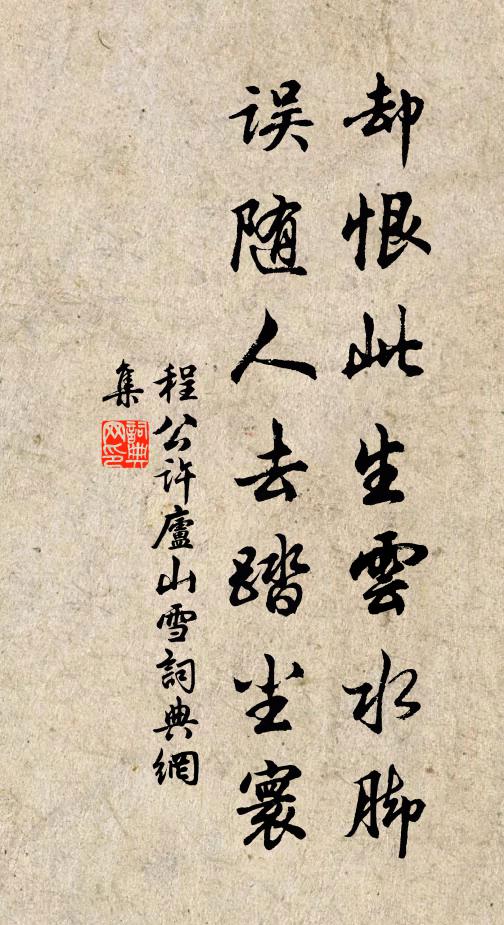 却恨此生雲水脚
误随人去踏尘寰
程公许廬山雪詞典網
集
詞典
网印